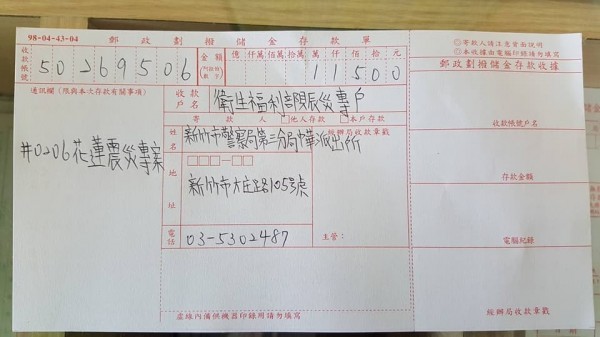 98-04-43-04
郵政劃撥儲金存款單
◎寄款人請注意背面說明
◎本收據由電腦印錄請勿填寫
收款帳號 50269506
金額 億仟萬佰萬拾萬萬仟佰拾元
11500
通訊欄（限與本次存款有關事項）
#0206花蓮震災專案
收款戶名 衛生福利部賑災專戶
寄款人 □他人存款 □本戶存款
姓名 新竹市警察局第三分局中華派出所
經辦局收款章戳
地址 新竹市大庄路105號
電話 03-5302487
主管：
虛線內備供機器印錄用請勿填寫
郵政劃撥儲金存款收據
收款帳號戶名
存款金額
電腦紀錄
經辦局收款章戳